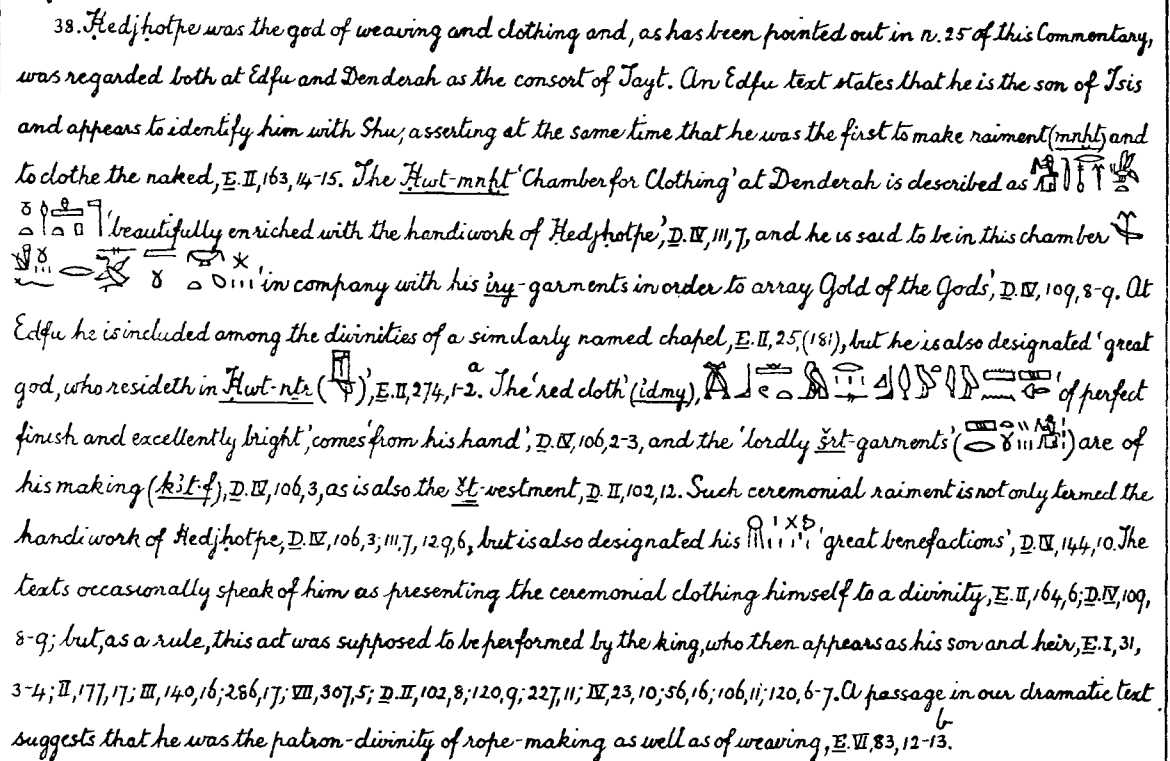 38. Ḥedjḥotpe was the god of weaving and clothing and, as has been pointed out in n. 25 of this Commentary,
was regarded both at Edfu and Denderah as the consort of Tayt. An Edfu text states that he is the son of Isis
and appears to identify him with Shu, asserting at the same time that he was the first to make raiment (mnḫt) and
to clothe the naked, E. II, 163, 14-15. The Ḥwt-mnḫt 'Chamber for Clothing' at Denderah is described as
'beautifully enriched with the handiwork of Ḥedjḥotpe', D. IV, 111, 7, and he is said to be in this chamber
'in company with his ỉry-garments in order to array Gold of the Gods', D. IV, 109, 8-9. At
Edfu he is included among the divinities of a similarly named chapel, E. II, 25, (181), but he is also designated 'great
god, who resideth in Ḥwt-nṯr ( )', E. II, 274, 1-2.ᵃ The 'red cloth' (ỉdmy), 'of perfect
finish and excellently bright', comes 'from his hand', D. IV, 106, 2-3, and the 'lordly šrt-garments' ( ) are of
his making (kꜣt·f), D. IV, 106, 3, as is also the št-vestment, D. II, 102, 12. Such ceremonial raiment is not only termed the
handiwork of Ḥedjḥotpe, D. IV, 106, 3; 111, 7, 129, 6, but is also designated his 'great benefactions', D. IV, 144, 10. The
texts occasionally speak of him as presenting the ceremonial clothing himself to a divinity, E. II, 164, 6; D. IV, 109,
8-9; but, as a rule, this act was supposed to be performed by the king, who then appears as his son and heir, E. I, 31,
3-4; II, 177, 17; III, 140, 16; 286, 17; VII, 307, 5; D. II, 102, 8; 120, 9; 227, 11; IV, 23, 10; 56, 16; 106, 11; 120, 6-7. A passage in our dramatic text
suggests that he was the patron-divinity of rope-making as well as of weaving,ᵇ E. VI, 83, 12-13.